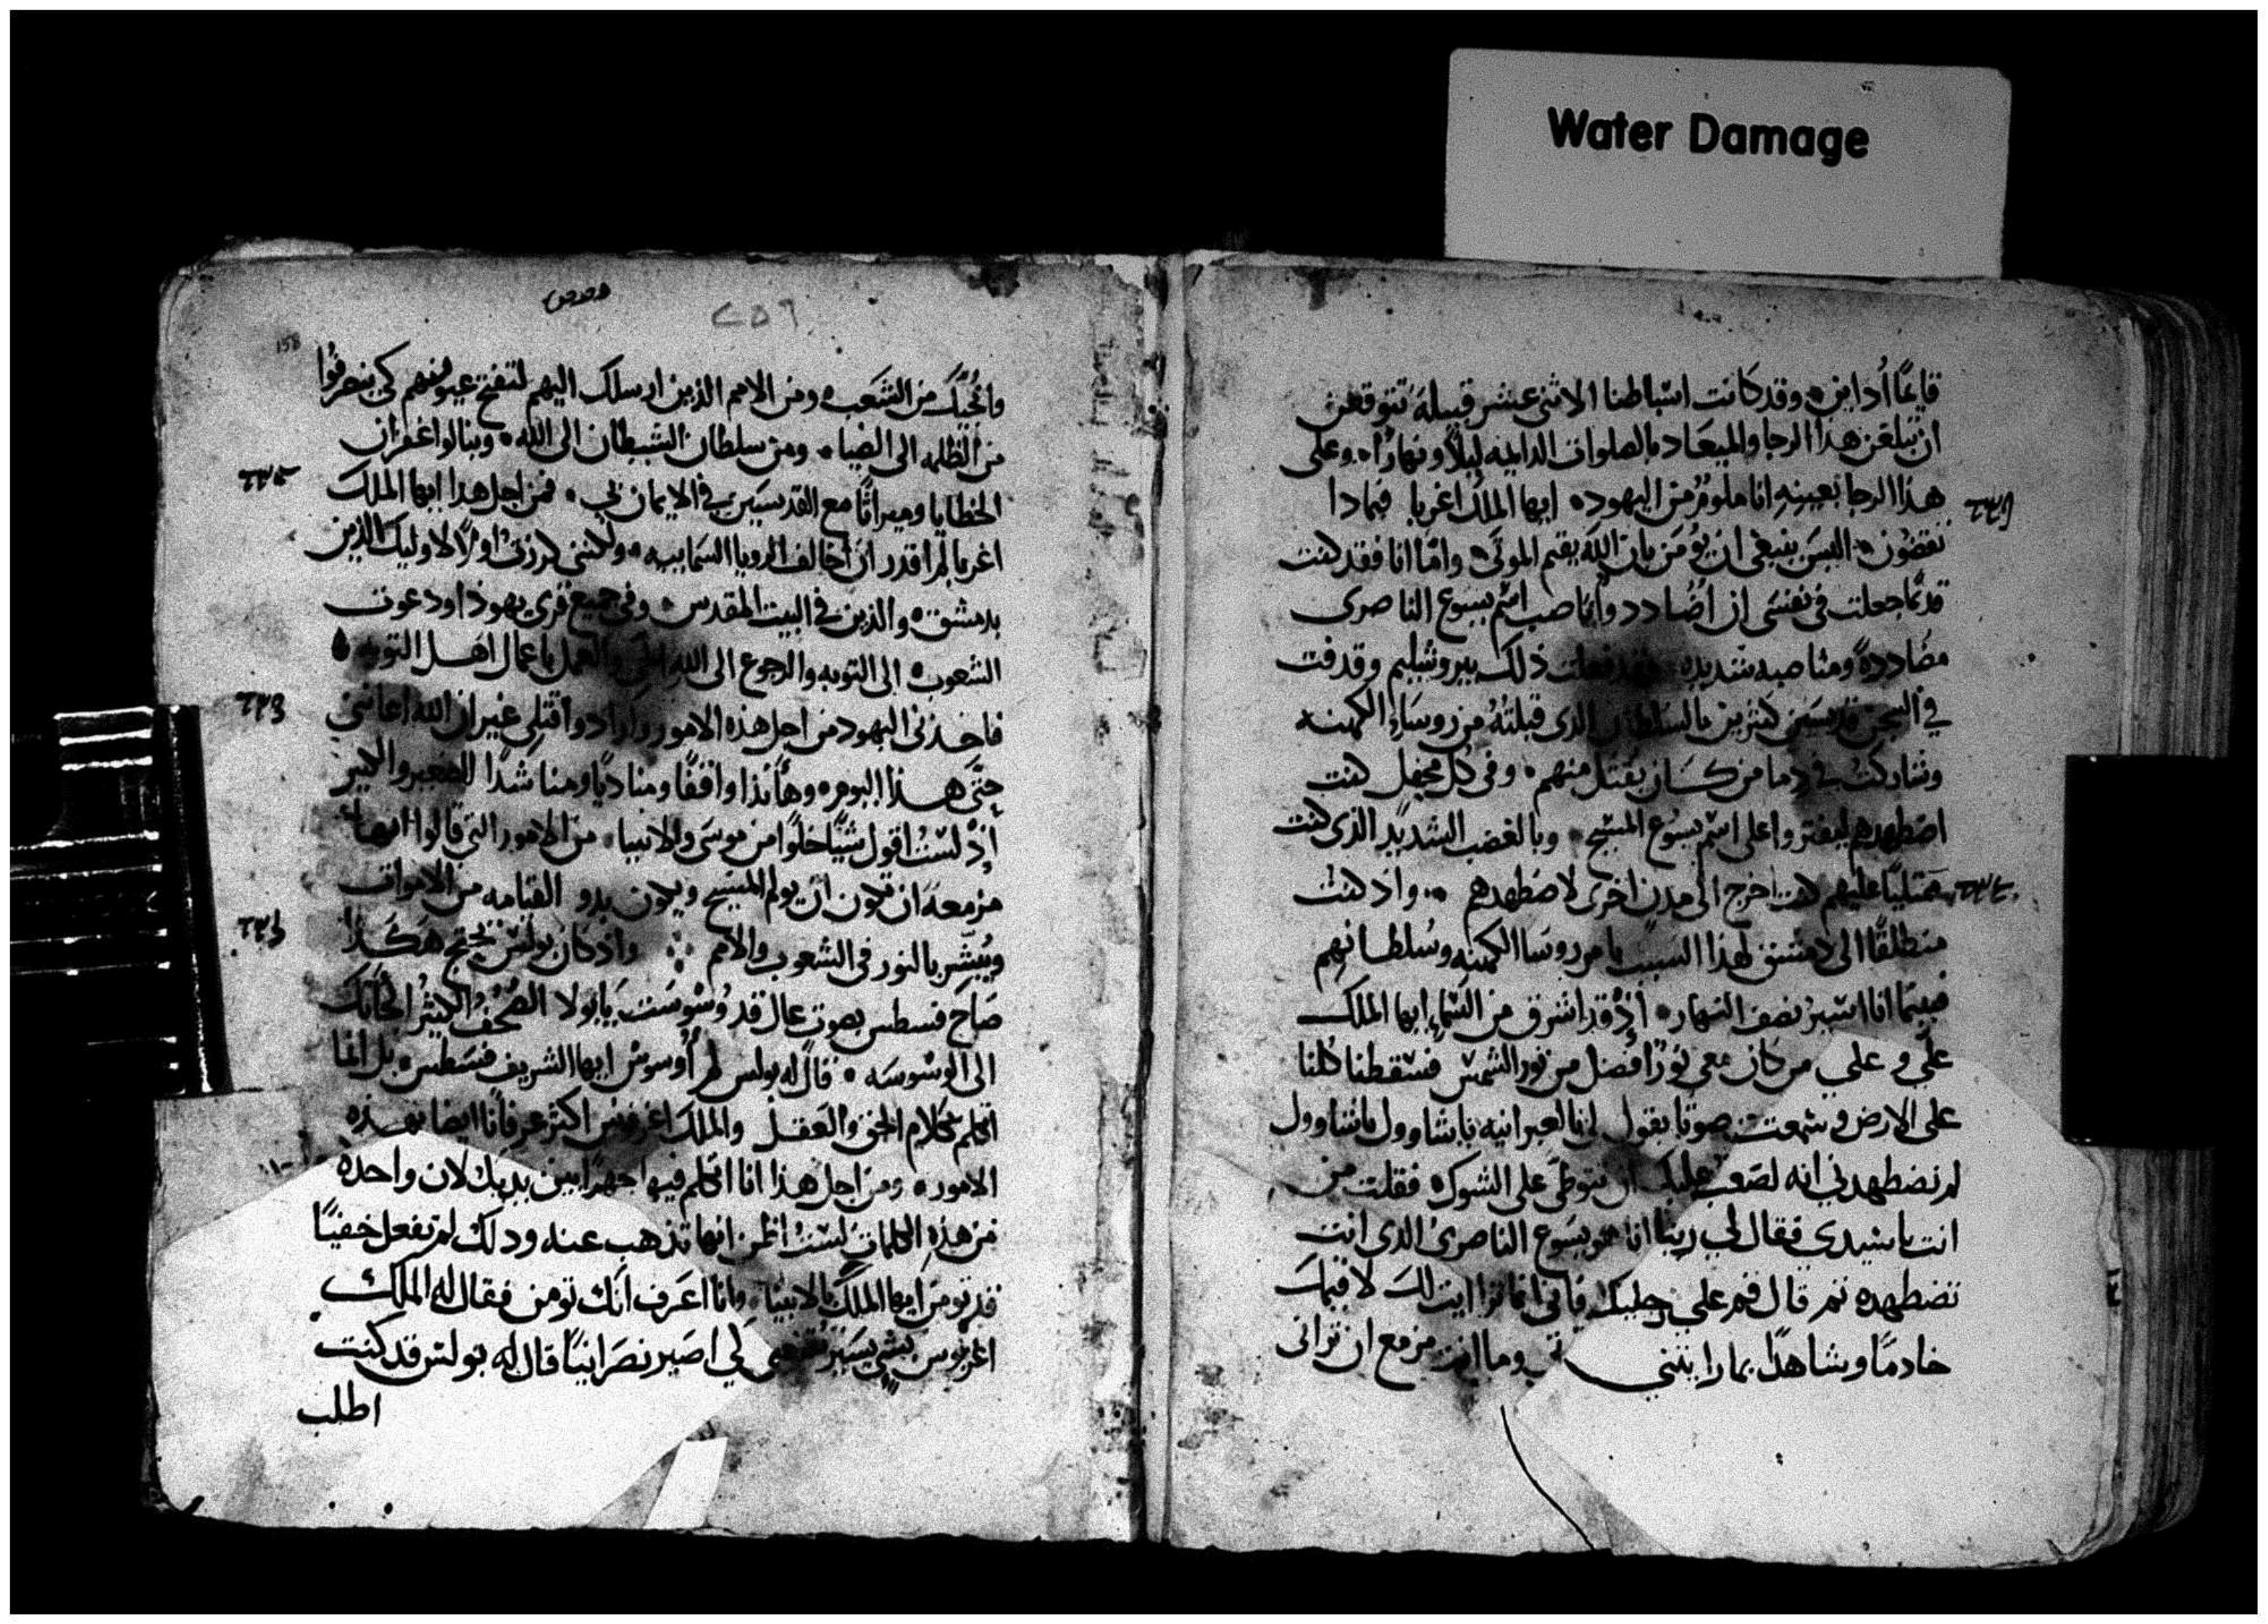 Water Damage
قايمًا أُداين وقد كانت اسباطنا الاثنى عشر قبيلة تتوقعن
ان تبلغن هذا الرجا والميعاد بالصلوات الدايمه ليلًا ونهارًا وعلى
هذا الرجا بعينهِ انا ملومٌ من اليهود ايها الملك اغربا فمادا
تقضون اليس ينبغى ان يؤمن بان الله يقيم الموتى وامّا انا فقد كنت
قدمًا جعلت فى نفسى ان اضُادد واناصب اسم يسوع الناصرى
مضُاددةً ومناصبه شديده وقد فعلت ذلك بيروشليم وقدفت
في السجن قديسين كثيرين بالسلطان الذى قبلتهُ من روساءِ الكهنه
وشاركتُ في دما من كان يقتل منهم وفى كل محفل كنت
اضطهدهم ليفتروا على اسم يسوع المسيح وبالغضب الشديد الذى كنت
ممتليًا عليهم كنت اخرج الى مدن اخرى لاضطهدهم واذ كنت
منطلقًا الى دمشق لهذا السبب بامر روسا الكهنه وسُلطانهم
فبينما انا اسير نصف النهار اذْ قد اشرق من السماءِ ايها الملك
علَّي وعلي من كان معى نورًا افضل من نور الشمس فسقطنا كلنا
على الارض وسمعت صوتًا يقول لى بالعبرانيه ياشاوول ياشاوول
لم تضطهدني انه لصعب عليك ان تتوطى على الشوك فقلت من
انت ياسيدي فقال لي ربنا انا هو يسوع الناصرى الذى انت
تضطهده ثم قال قم على رجليك فاني انما تراايت لك لاقيمك
خادمًا وشاهدًا بما رايتني به وما انت مزمع ان تراني
٢٥٦
158
وانجيك من الشعب ومن الامم الذين ارسلك اليهم لتفتح عيونهم كى ينحرفوا
من الظلمه الى الضياء ومن سلطان الشيطان الى الله وينالوا غفران
الخطايا وميراثًا مع القديسين في الايمان بي فمن اجل هذا ايها الملك
اغربا لم اقدر ان اخالف الرويا السماييه ولكننى كرزت اولًا لاوليك الذين
بدمشق والذين في البيت المقدس وفى جميع قرى يهوذا ودعوت
الشعوب الى التوبه والرجوع الى الله الحي والعمل باعمال اهل التوبه
فاخذنى اليهود من اجل هذه الامور وارادوا قتلي غير ان الله اعاننى
حتّى هذا اليوم وهأنذا واقفًا ومناديًا ومناشدًا الصغير والكبير
إذْ لستُ اقول شيًا خلوًا من موسى والانبيا من الامور التي قالوا انها
مزمعة ان تكون ان يولم المسيح ويكون بدو القيامه من الاموات
ويُبشر بالنور فى الشعوب والامم واذ كان بولس يحتج هكذا
صَاح فسطس بصوت عال قد وُسْوِست يابولا الصُحف الكثيرُ الجاتك
الى الوسْوسَه قال له بولس لم أُوسوس ايها الشريف فسطس بل انما
اتكلم بكلام الحق والعقل والملك اغربوس اكثر عرفانًا ايضا بهذه
الامور ومن اجل هذا انا اتكلم فيها جهرًا بين يديك لان واحده
من هذه الكلمات لستُ اظن انها تذهب عنه وذلك لم تفعل خفيًا
قد تومن ايها الملك بالانبيا وانا اعرف انك تومن فقال له الملك
اغربوس بشي يسير تقنعني كي اصير نصرانيًا قال له بولس قد كنت
اطلب